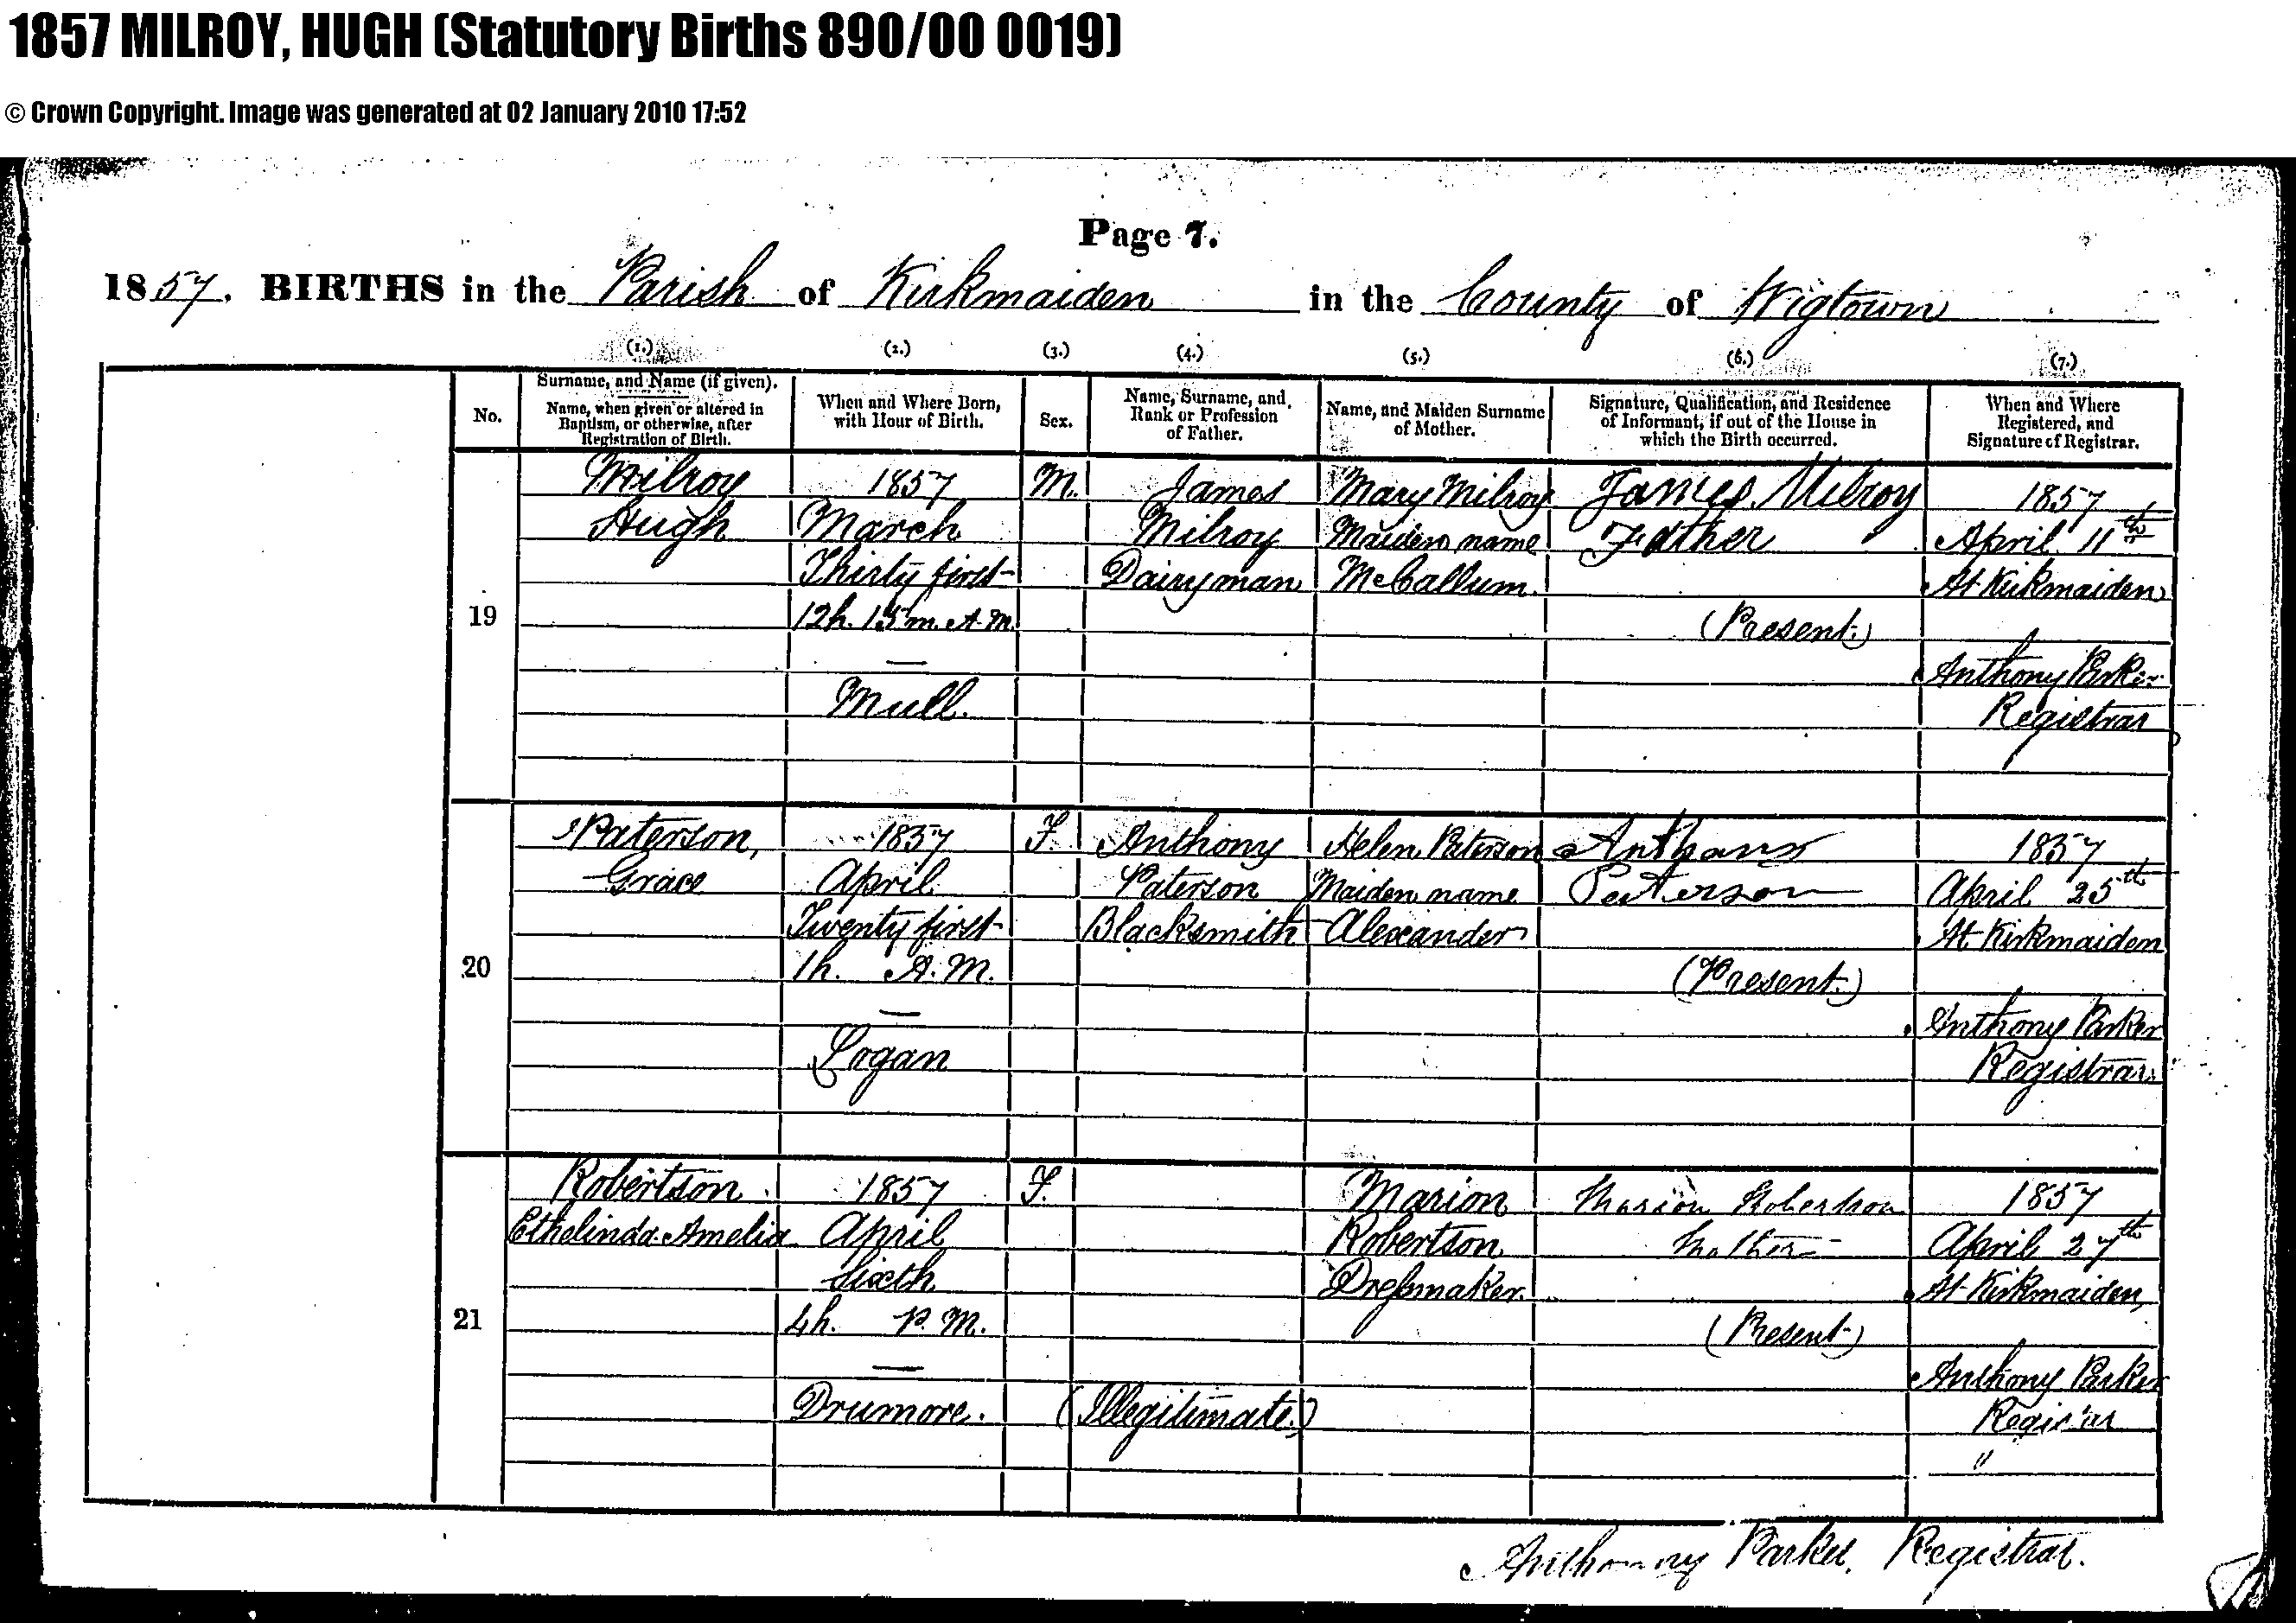 1857 MILROY, HUGH (Statutory Births 890/00 0019)
© Crown Copyright. Image was generated at 02 January 2010 17:52
Page 7.
1857. BIRTHS in the Parish of Kirkmaiden in the County of Wigtown
(1.) (2.) (3.) (4.) (5.) (6.) (7.)
No.
Surname, and Name (if given).
Name, when given or altered in
Baptism, or otherwise, after
Registration of Birth.
When and Where Born,
with Hour of Birth.
Sex.
Name, Surname, and
Rank or Profession
of Father.
Name, and Maiden Surname
of Mother.
Signature, Qualification, and Residence
of Informant, if out of the House in
which the Birth occurred.
When and Where
Registered, and
Signature of Registrar.
19
Milroy
Hugh
1857
March
Thirty first
12h. 15m. A.M.
Mull.
M.
James
Milroy
Dairyman
Mary Milroy
Maiden name
McCallum.
James Milroy
Father
(Present.)
1857
April 11th
At Kirkmaiden
Anthony Parker
Registrar
20
Paterson,
Grace
1857
April
Twenty first
1h. A.M.
Logan
F.
Anthony
Paterson
Blacksmith
Helen Paterson
Maiden name
Alexander
Anthony
Paterson
(Present.)
1857
April 25th
At Kirkmaiden
Anthony Parker
Registrar.
21
Robertson
Ethelinda Amelia
1857
April
Sixth
4h. P.M.
Drumore.
F.
(Illegitimate.)
Marion
Robertson
Dressmaker.
Marion Robertson
Mother
(Present.)
1857
April 27th
At Kirkmaiden,
Anthony Parker
Registrar
"
Anthony Parker, Registrar.